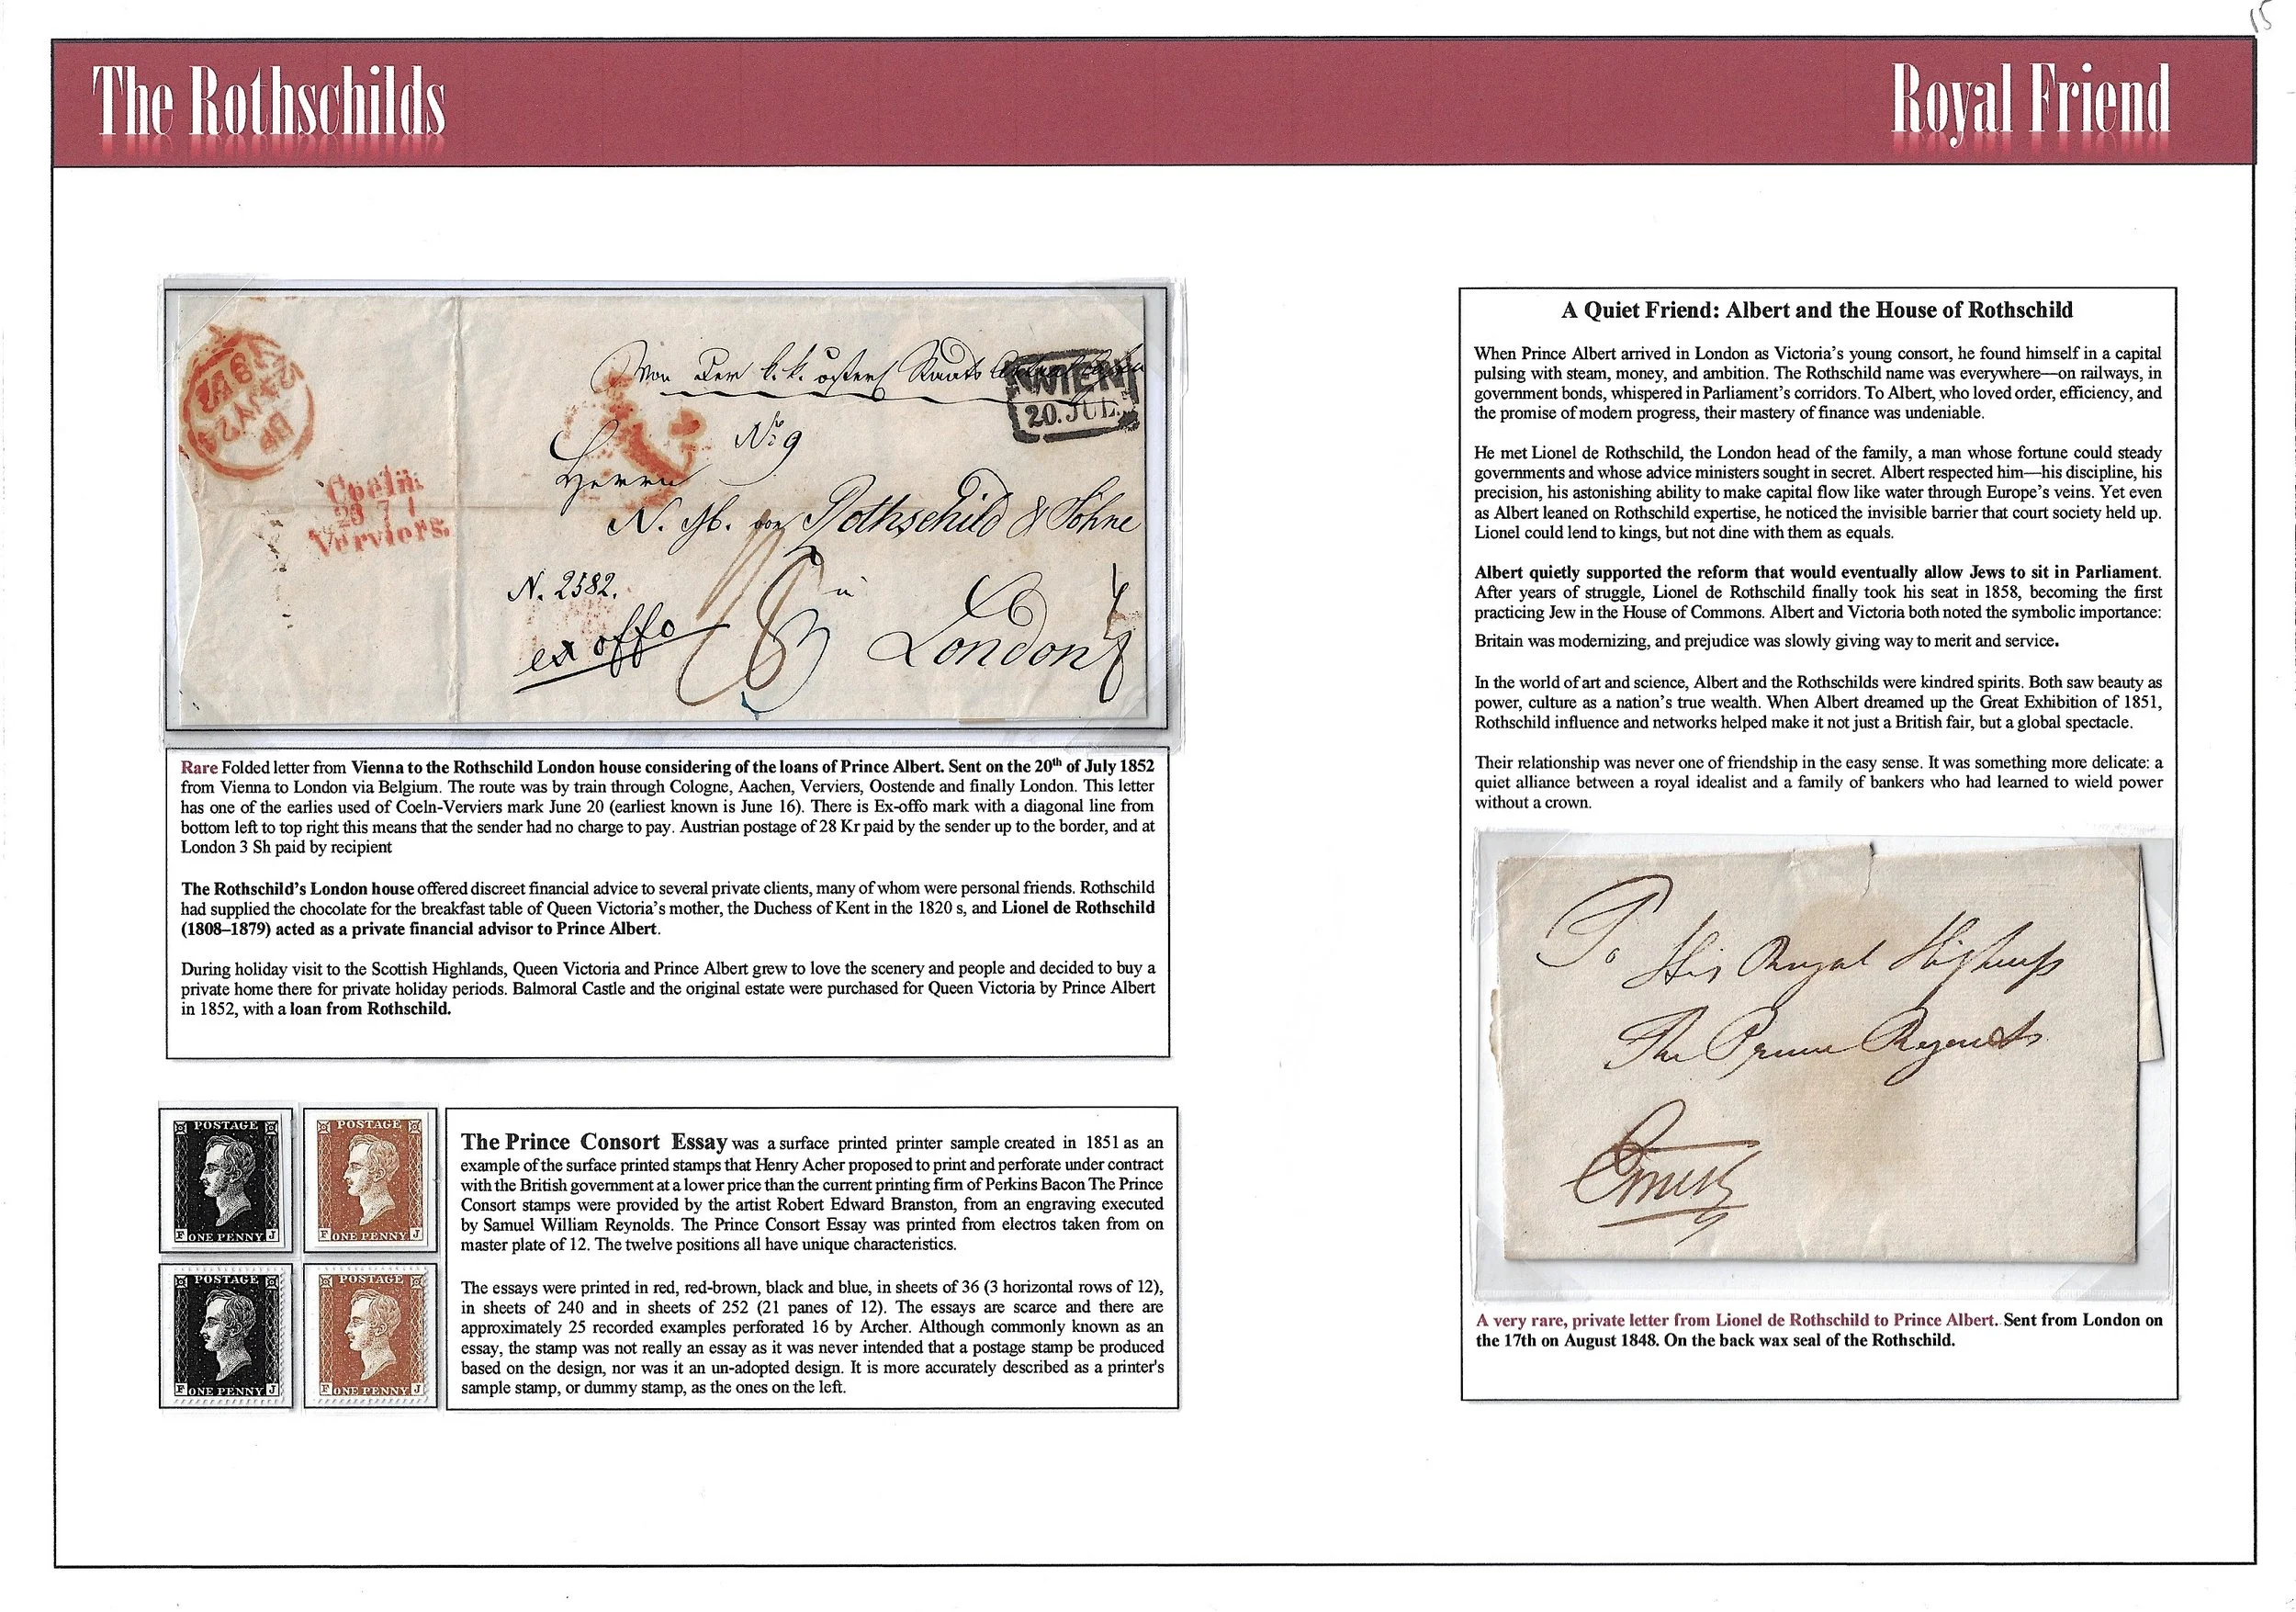 15
The Rothschilds
Royal Friend
Von der k. k. österr Staats
WIEN
20. JUL.
No 9
Herrn
N. M. von Rothschild & Söhne
Coeln
Verviers.
N. 2582.
in
ex offo
London
Rare Folded letter from Vienna to the Rothschild London house considering of the loans of Prince Albert. Sent on the 20th of July 1852
from Vienna to London via Belgium. The route was by train through Cologne, Aachen, Verviers, Oostende and finally London. This letter
has one of the earlies used of Coeln-Verviers mark June 20 (earliest known is June 16). There is Ex-offo mark with a diagonal line from
bottom left to top right this means that the sender had no charge to pay. Austrian postage of 28 Kr paid by the sender up to the border, and at
London 3 Sh paid by recipient
The Rothschild's London house offered discreet financial advice to several private clients, many of whom were personal friends. Rothschild
had supplied the chocolate for the breakfast table of Queen Victoria's mother, the Duchess of Kent in the 1820 s, and Lionel de Rothschild
(1808–1879) acted as a private financial advisor to Prince Albert.
During holiday visit to the Scottish Highlands, Queen Victoria and Prince Albert grew to love the scenery and people and decided to buy a
private home there for private holiday periods. Balmoral Castle and the original estate were purchased for Queen Victoria by Prince Albert
in 1852, with a loan from Rothschild.
POSTAGE
F ONE PENNY J
POSTAGE
F ONE PENNY J
POSTAGE
F ONE PENNY J
POSTAGE
F ONE PENNY J
The Prince Consort Essay was a surface printed printer sample created in 1851 as an
example of the surface printed stamps that Henry Acher proposed to print and perforate under contract
with the British government at a lower price than the current printing firm of Perkins Bacon The Prince
Consort stamps were provided by the artist Robert Edward Branston, from an engraving executed
by Samuel William Reynolds. The Prince Consort Essay was printed from electros taken from on
master plate of 12. The twelve positions all have unique characteristics.
The essays were printed in red, red-brown, black and blue, in sheets of 36 (3 horizontal rows of 12),
in sheets of 240 and in sheets of 252 (21 panes of 12). The essays are scarce and there are
approximately 25 recorded examples perforated 16 by Archer. Although commonly known as an
essay, the stamp was not really an essay as it was never intended that a postage stamp be produced
based on the design, nor was it an un-adopted design. It is more accurately described as a printer's
sample stamp, or dummy stamp, as the ones on the left.
A Quiet Friend: Albert and the House of Rothschild
When Prince Albert arrived in London as Victoria's young consort, he found himself in a capital
pulsing with steam, money, and ambition. The Rothschild name was everywhere—on railways, in
government bonds, whispered in Parliament's corridors. To Albert, who loved order, efficiency, and
the promise of modern progress, their mastery of finance was undeniable.
He met Lionel de Rothschild, the London head of the family, a man whose fortune could steady
governments and whose advice ministers sought in secret. Albert respected him—his discipline, his
precision, his astonishing ability to make capital flow like water through Europe's veins. Yet even
as Albert leaned on Rothschild expertise, he noticed the invisible barrier that court society held up.
Lionel could lend to kings, but not dine with them as equals.
Albert quietly supported the reform that would eventually allow Jews to sit in Parliament.
After years of struggle, Lionel de Rothschild finally took his seat in 1858, becoming the first
practicing Jew in the House of Commons. Albert and Victoria both noted the symbolic importance:
Britain was modernizing, and prejudice was slowly giving way to merit and service.
In the world of art and science, Albert and the Rothschilds were kindred spirits. Both saw beauty as
power, culture as a nation's true wealth. When Albert dreamed up the Great Exhibition of 1851,
Rothschild influence and networks helped make it not just a British fair, but a global spectacle.
Their relationship was never one of friendship in the easy sense. It was something more delicate: a
quiet alliance between a royal idealist and a family of bankers who had learned to wield power
without a crown.
To
His Royal Highness
The Prince Regent
A very rare, private letter from Lionel de Rothschild to Prince Albert. Sent from London on
the 17th on August 1848. On the back wax seal of the Rothschild.